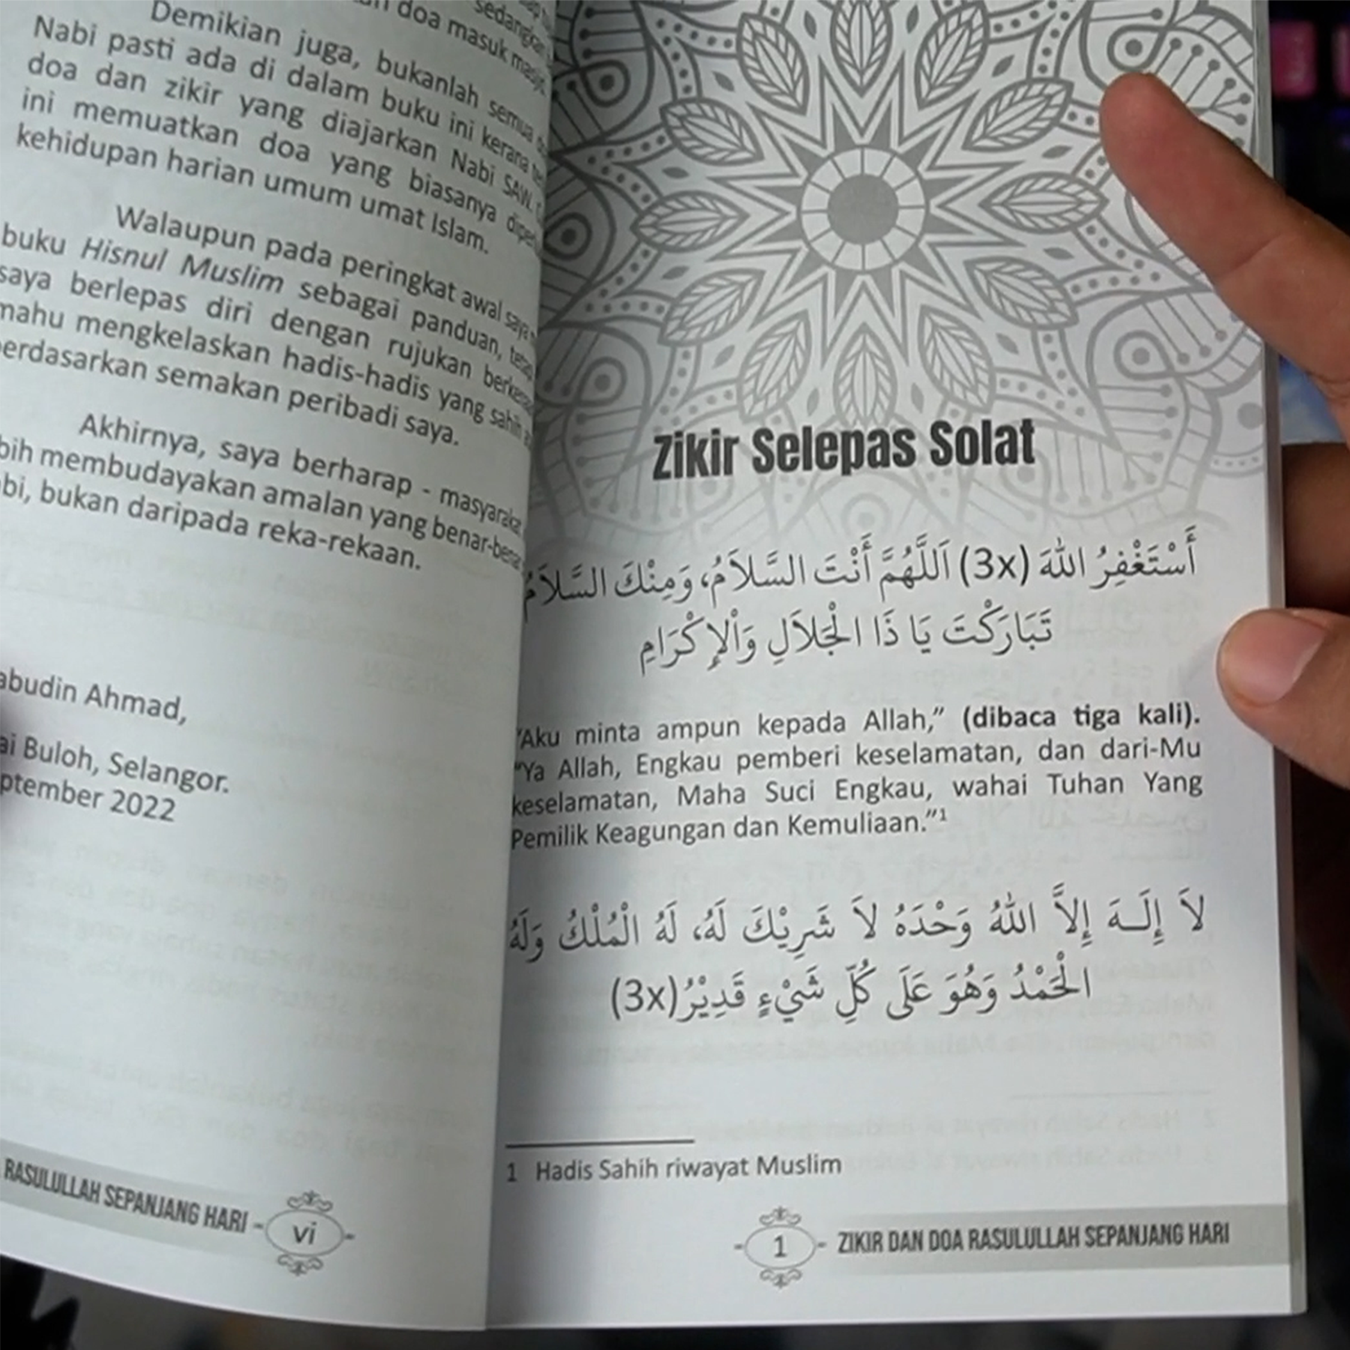 doa masuk masjid
sedangkan
Demikian juga, bukanlah semua
Nabi pasti ada di dalam buku ini kerana
doa dan zikir yang diajarkan Nabi SAW.
ini memuatkan doa yang biasanya
kehidupan harian umum umat Islam.
Walaupun pada peringkat awal saya
buku Hisnul Muslim sebagai panduan,
saya berlepas diri dengan rujukan
mahu mengkelaskan hadis-hadis yang sahih
berdasarkan semakan peribadi saya.
Akhirnya, saya berharap - masyarakat
membudayakan amalan yang benar-benar
bukan daripada reka-rekaan.
Ahmad,
Buloh, Selangor.
2022
RASULULLAH SEPANJANG HARI - vi -
Zikir Selepas Solat
أَسْتَغْفِرُ اللهَ (3x) اَللَّهُمَّ أَنْتَ السَّلاَمُ، وَمِنْكَ السَّلاَمُ
تَبَارَكْتَ يَا ذَا الْجَلاَلِ وَاْلإِكْرَامِ
"Aku minta ampun kepada Allah," (dibaca tiga kali).
"Ya Allah, Engkau pemberi keselamatan, dan dari-Mu
keselamatan, Maha Suci Engkau, wahai Tuhan Yang
Pemilik Keagungan dan Kemuliaan."¹
لاَ إِلَـهَ إِلاَّ اللهُ وَحْدَهُ لاَ شَرِيْكَ لَهُ، لَهُ الْمُلْكُ وَلَهُ
الْحَمْدُ وَهُوَ عَلَى كُلِّ شَيْءٍ قَدِيْرُ(3x)
1 Hadis Sahih riwayat Muslim
- 1 - ZIKIR DAN DOA RASULULLAH SEPANJANG HARI